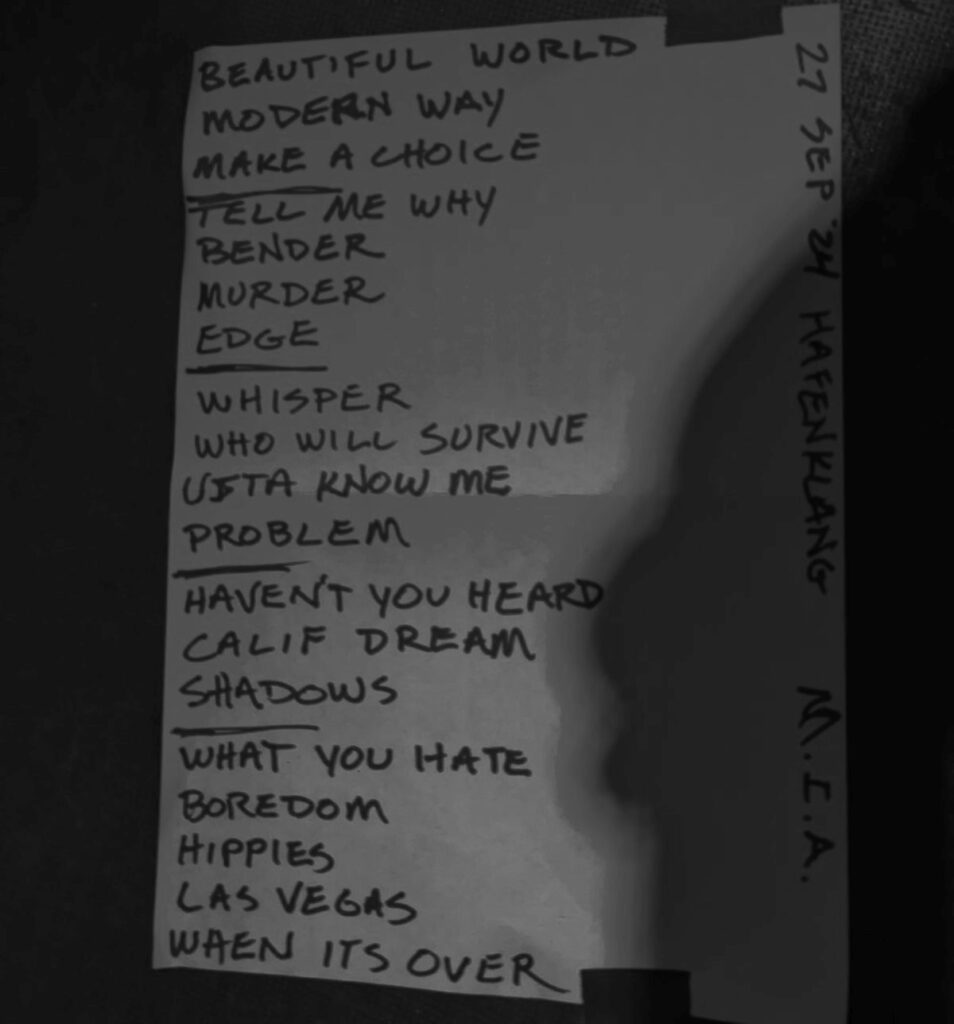 BEAUTIFUL WORLD
MODERN WAY
MAKE A CHOICE
TELL ME WHY
BENDER
MURDER
EDGE
WHISPER
WHO WILL SURVIVE
USTA KNOW ME
PROBLEM
HAVEN'T YOU HEARD
CALIF DREAM
SHADOWS
WHAT YOU HATE
BOREDOM
HIPPIES
LAS VEGAS
WHEN ITS OVER
27 SEP '24 HAFENKLANG M.I.A.